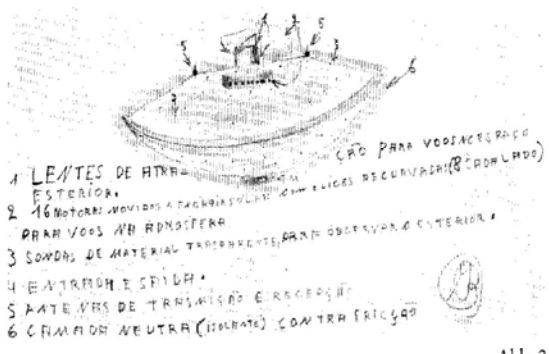 1 2 5
5 3
6
3
1 LENTES DE ATRA ÇÃO PARA VOOS NO ESPAÇO
ESTERIOR.
2 16 MOTORES MOVIDOS A ENERGIA SOLAR COM ELICES RECURVADAS (8 CADA LADO)
PARA VOOS NA ADMOSFERA
3 SONDAS DE MATERIAL TRASPARENTE, PARA OBCERVAR O ESTERIOR.
4 ENTRADA E SAIDA.
5 ANTENAS DE TRANSMIÇÃO E RECEPÇÃO
6 CAMADA NEUTRA (ISOLANTE) CONTRA FRICÇÃO